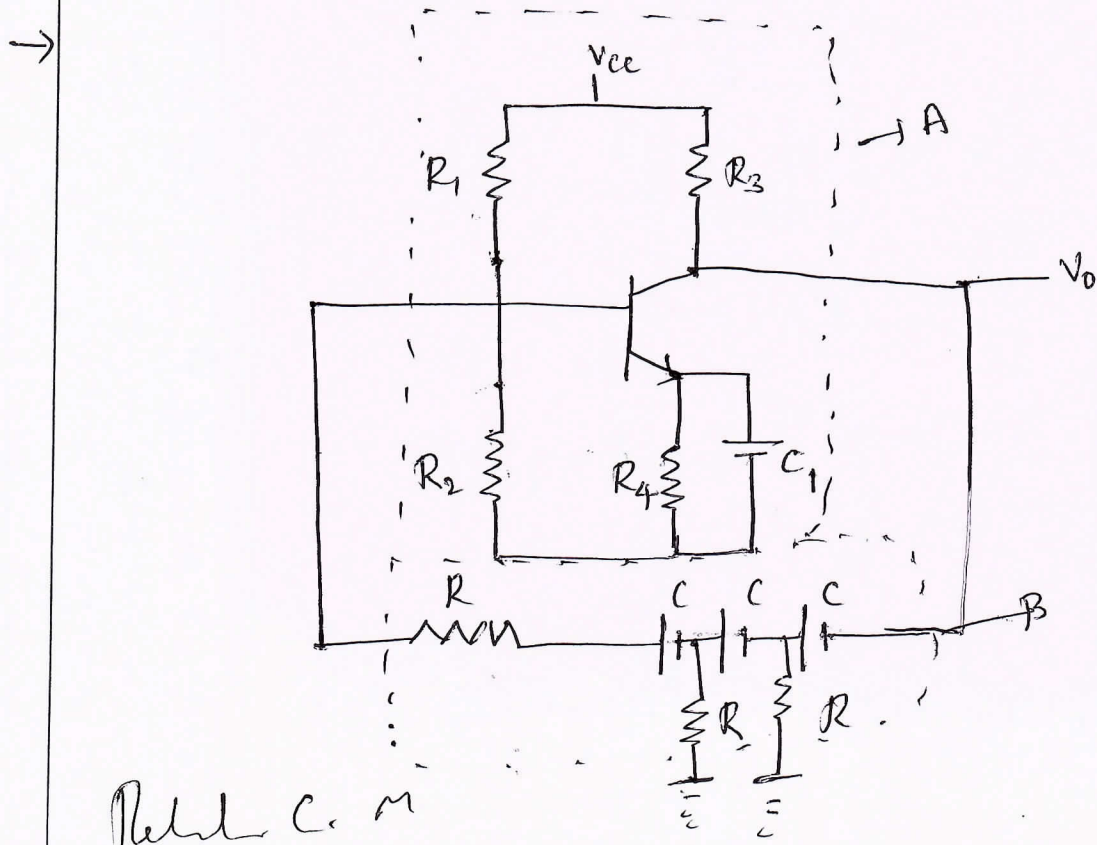 →
Vcc
→ A
R1
R3
V0
R2
R4
C1
R
C
C
C
B
R
R
C. M